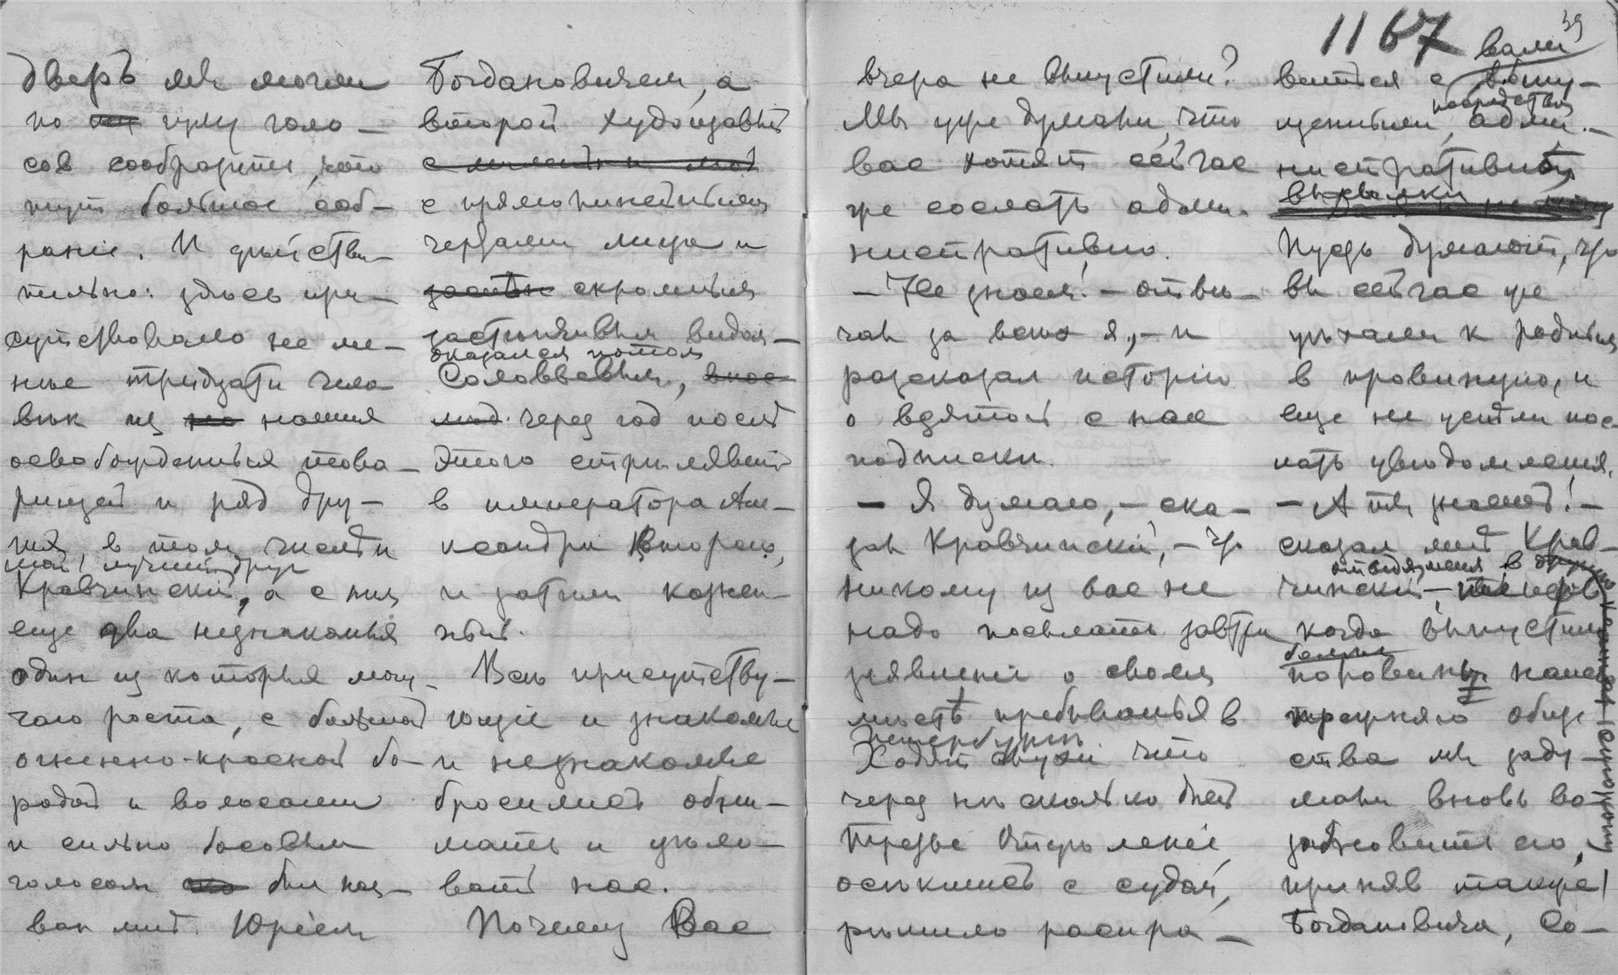 дверь мы могли
по гулу голо-
сов сообразить, что
тут большое соб-
рание. И действи-
тельно: здесь при-
сутствовало не ме-
нее тридцати чело
век из наших
освобожденных това-
рищей и ряд дру-
гих, в том числе и
мой лучший друг
Кравчинский, а с ним
еще два незнакомых
один из которых могу-
чаго роста, с большой
огненно-красной бо-
родой и волосами
и сильно басовым
голосом был наз-
ван мне Юрием
Богдановичем, а
второй худощавый
с прямолинейными
чертами лица и
скромным
застенчивым видом-
оказался потом
Соловьевым,
через год после
этого стрелявший
в императора Але-
ксандра Второго,
и затем казнен-
ный.
Все присутству-
ющие и знакомые
и незнакомые
бросились обни-
мать и цело-
вать нас.
Почему Вас
1167
39
вчера не выпустили?
Мы уже думали, что
вас хотят сейчас
же сослать адми-
нистративно.
- Не знаем! - отве-
чал за всех я, - и
рассказал историю
о взятой с нас
подписки.
- Я думаю, - ска-
зал Кравчинский, - что
никому из вас не
надо посылать завтра
заявление о своем
месте пребыванья в
Петербурге.
Ходят слухи что
через несколько дней
Третье Отделение,
осекшись с судом,
решило распра-
вами
виться с выпу-
посредством
щенными, адми-
нистративной
высылки
Пусть думают, что
вы сейчас же
уехали к родным
в провинцию, и
еще не успели пос-
лать уведомления.
- А ты знаешь! -
сказал мне Крав-
чинский,
отведя меня в другую комнату
когда выпустили
больше
половины нашего
прежняго обще
ства мы заду-
мали вновь во-
зобновить его,
приняв также
Богдановича, Со-